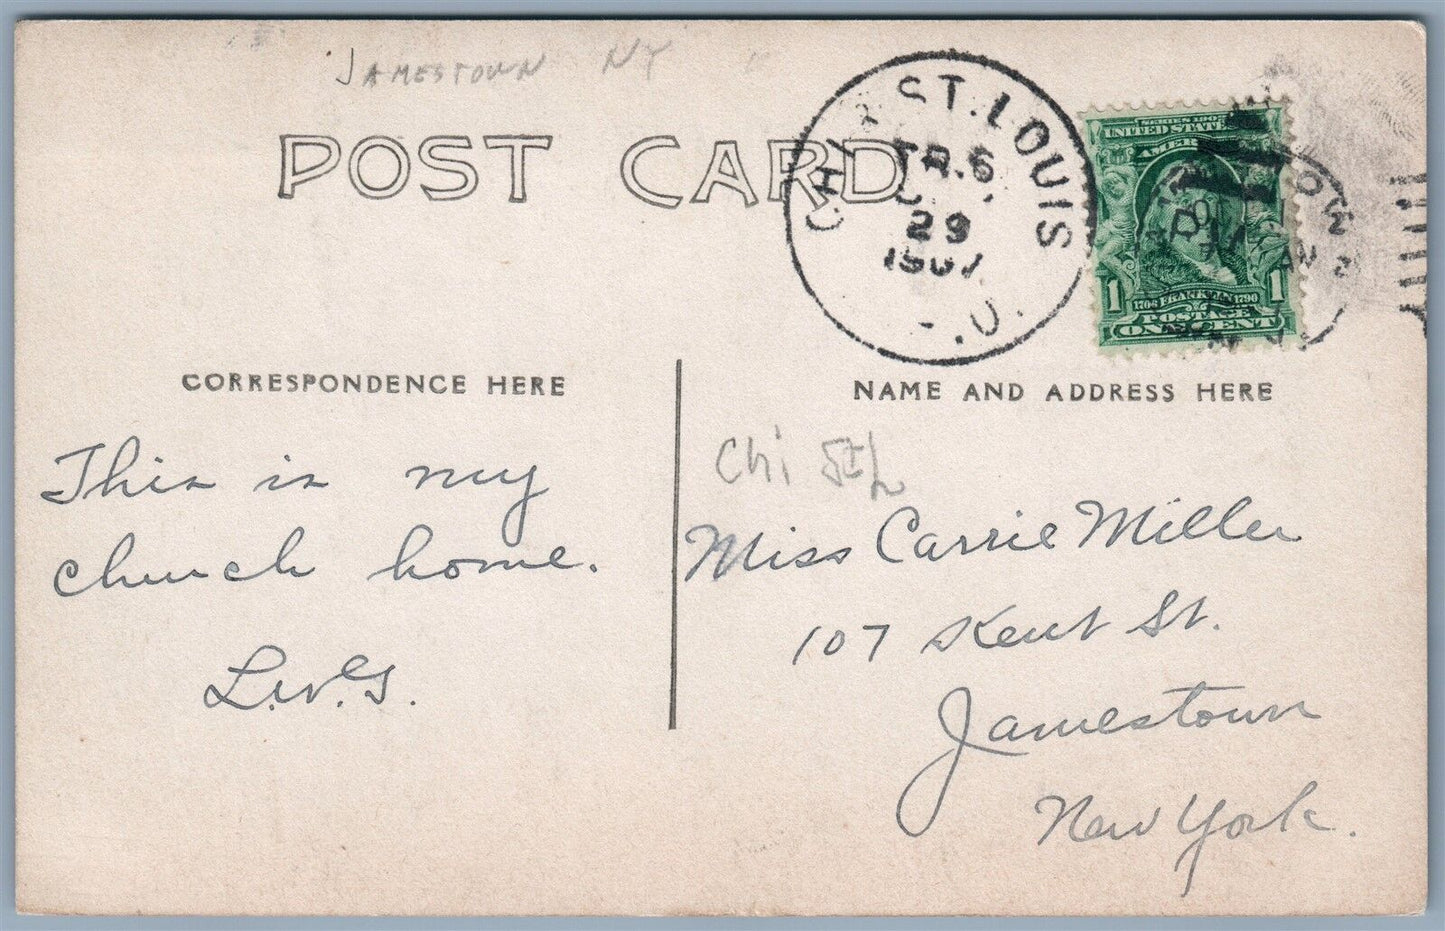 JAMESTOWN NY
POST CARD
CHI & ST. LOUIS
TR. 6
29
1907
SERIES 1902
UNITED STATES
AMER
1 1
1706 FRANKLIN 1790
POSTAGE
ONE CENT
CORRESPONDENCE HERE
This is my
church home.
L.W.G.
NAME AND ADDRESS HERE
Chi StL
Miss Carrie Miller
107 Kent St.
Jamestown
New York.